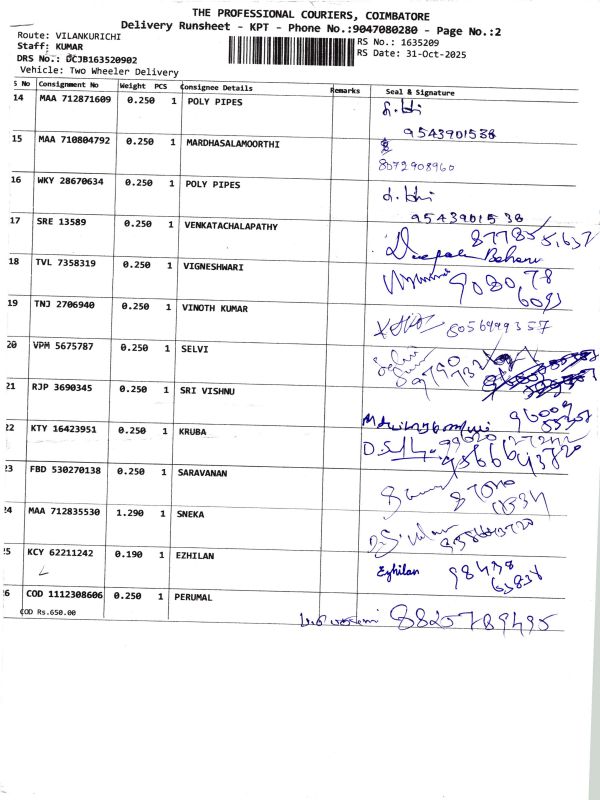 THE PROFESSIONAL COURIERS, COIMBATORE
Delivery Runsheet - KPT - Phone No.:9047080280 - Page No.:2
Route: VILANKURICHI
RS No.: 1635209
Staff: KUMAR
RS Date: 31-Oct-2025
DRS No.: DCJB163520902
Vehicle: Two Wheeler Delivery
S No Consignment No Weight PCS Consignee Details Remarks Seal & Signature
14 MAA 712871609 0.250 1 POLY PIPES
9543901538
15 MAA 710804792 0.250 1 MARDHASALAMOORTHI
8072908960
16 WKY 28670634 0.250 1 POLY PIPES
9543901538
17 SRE 13589 0.250 1 VENKATACHALAPATHY
18 TVL 7358319 0.250 1 VIGNESHWARI
908078
6093
19 TNJ 2706940 0.250 1 VINOTH KUMAR
8056999357
20 VPM 5675787 0.250 1 SELVI
21 RJP 3690345 0.250 1 SRI VISHNU
22 KTY 16423951 0.250 1 KRUBA
23 FBD 530270138 0.250 1 SARAVANAN
24 MAA 712835530 1.290 1 SNEKA
25 KCY 62211242 0.190 1 EZHILAN
Ezhilan 98438
63838
26 COD 1112308606 0.250 1 PERUMAL
COD Rs.650.00
8825789495